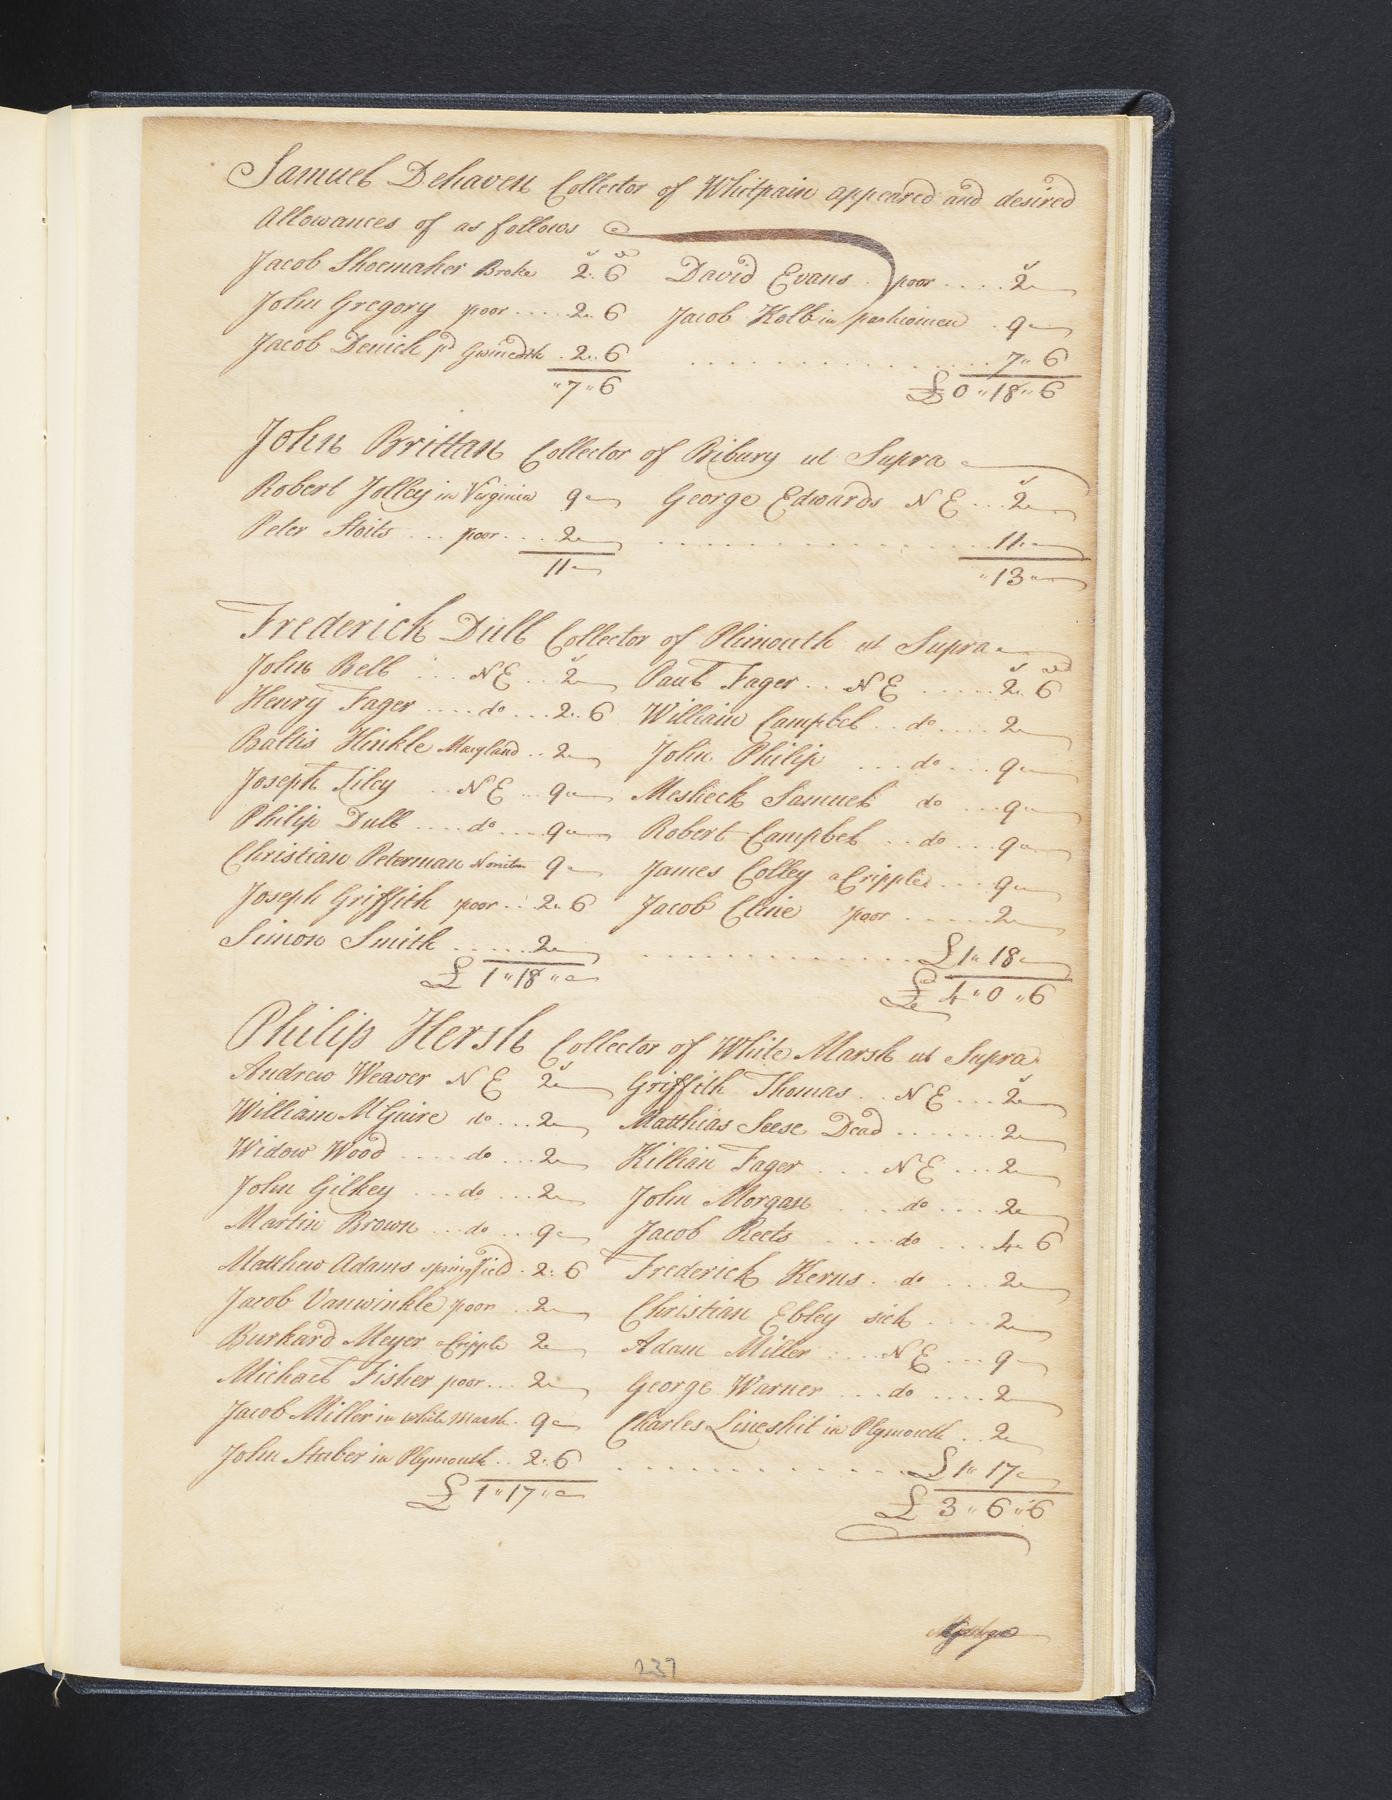 Samuel Dehaven Collector of Whitpain appeared and desired
Allowances of as follows
Jacob Shoemaker Broke 2.. 6 David Evans poor .... 2
John Gregory poor .... 2.. 6 Jacob Kolb in perkiomen . 9
Jacob Denick pd Gwinedth . 2.. 6 ............ 7 " 6
" 7 " 6 £ 0 " 18 " 6
John Brittan Collector of Bibury ut Supra
Robert Jolley in Virginia 9 George Edwards N E ... 2
Peter Stoits ... poor .... 2 ............ 11
11 " 13 "
Frederick Dull Collector of Plimouth ut Supra
John Bell ... N E .. 2 Paul Fager .. N E ..... 2.. 6
Henry Fager .... do ... 2.. 6 William Campbel .. do .... 2
Baltis Hinkle Maryland .. 2 John Philip ... do ... 9
Joseph Tiley .. N E .. 9 Mesheck Samuel do ... 9
Philip Dull .... do ... 9 Robert Campbel .. do ... 9
Christian Peterman 9 James Colley a Cripple ... 9
Joseph Griffith poor ... 2.. 6 Jacob Cline poor ..... 2
Simon Smith ..... 2 ............ £ 1 " 18
£ 1 " 18 " £ 4 " 0 " 6
Philip Hersh Collector of White Marsh ut Supra
Andrew Weaver N E 2 Griffith Thomas .. N E ... 2
William McGuire do ... 2 Matthias Seese Dead ....... 2
Widow Wood .... do ... 2 Killian Fager .... N E ... 2
John Gilkey ... do ... 2 John Morgan .... do .... 2
Martin Brown ... do ... 9 Jacob Reets .... do ... 4.. 6
Matthew Adams springfield . 2.. 6 Frederick Kerns . do ... 2
Jacob Vanwinkle poor .. 2 Christian Ebley sick .... 2
Burkard Meyer a Cripple 2 Adam Miller .... N E ... 9
Michael Fisher poor ... 2 George Warner ... do .... 2
Jacob Miller in White Marsh . 9 Charles Lineshit in Plymouth .. 2
John Staber in Plymouth .. 2.. 6 ............ £ 1 " 17
£ 1 " 17 " £ 3 " 6 " 6
237